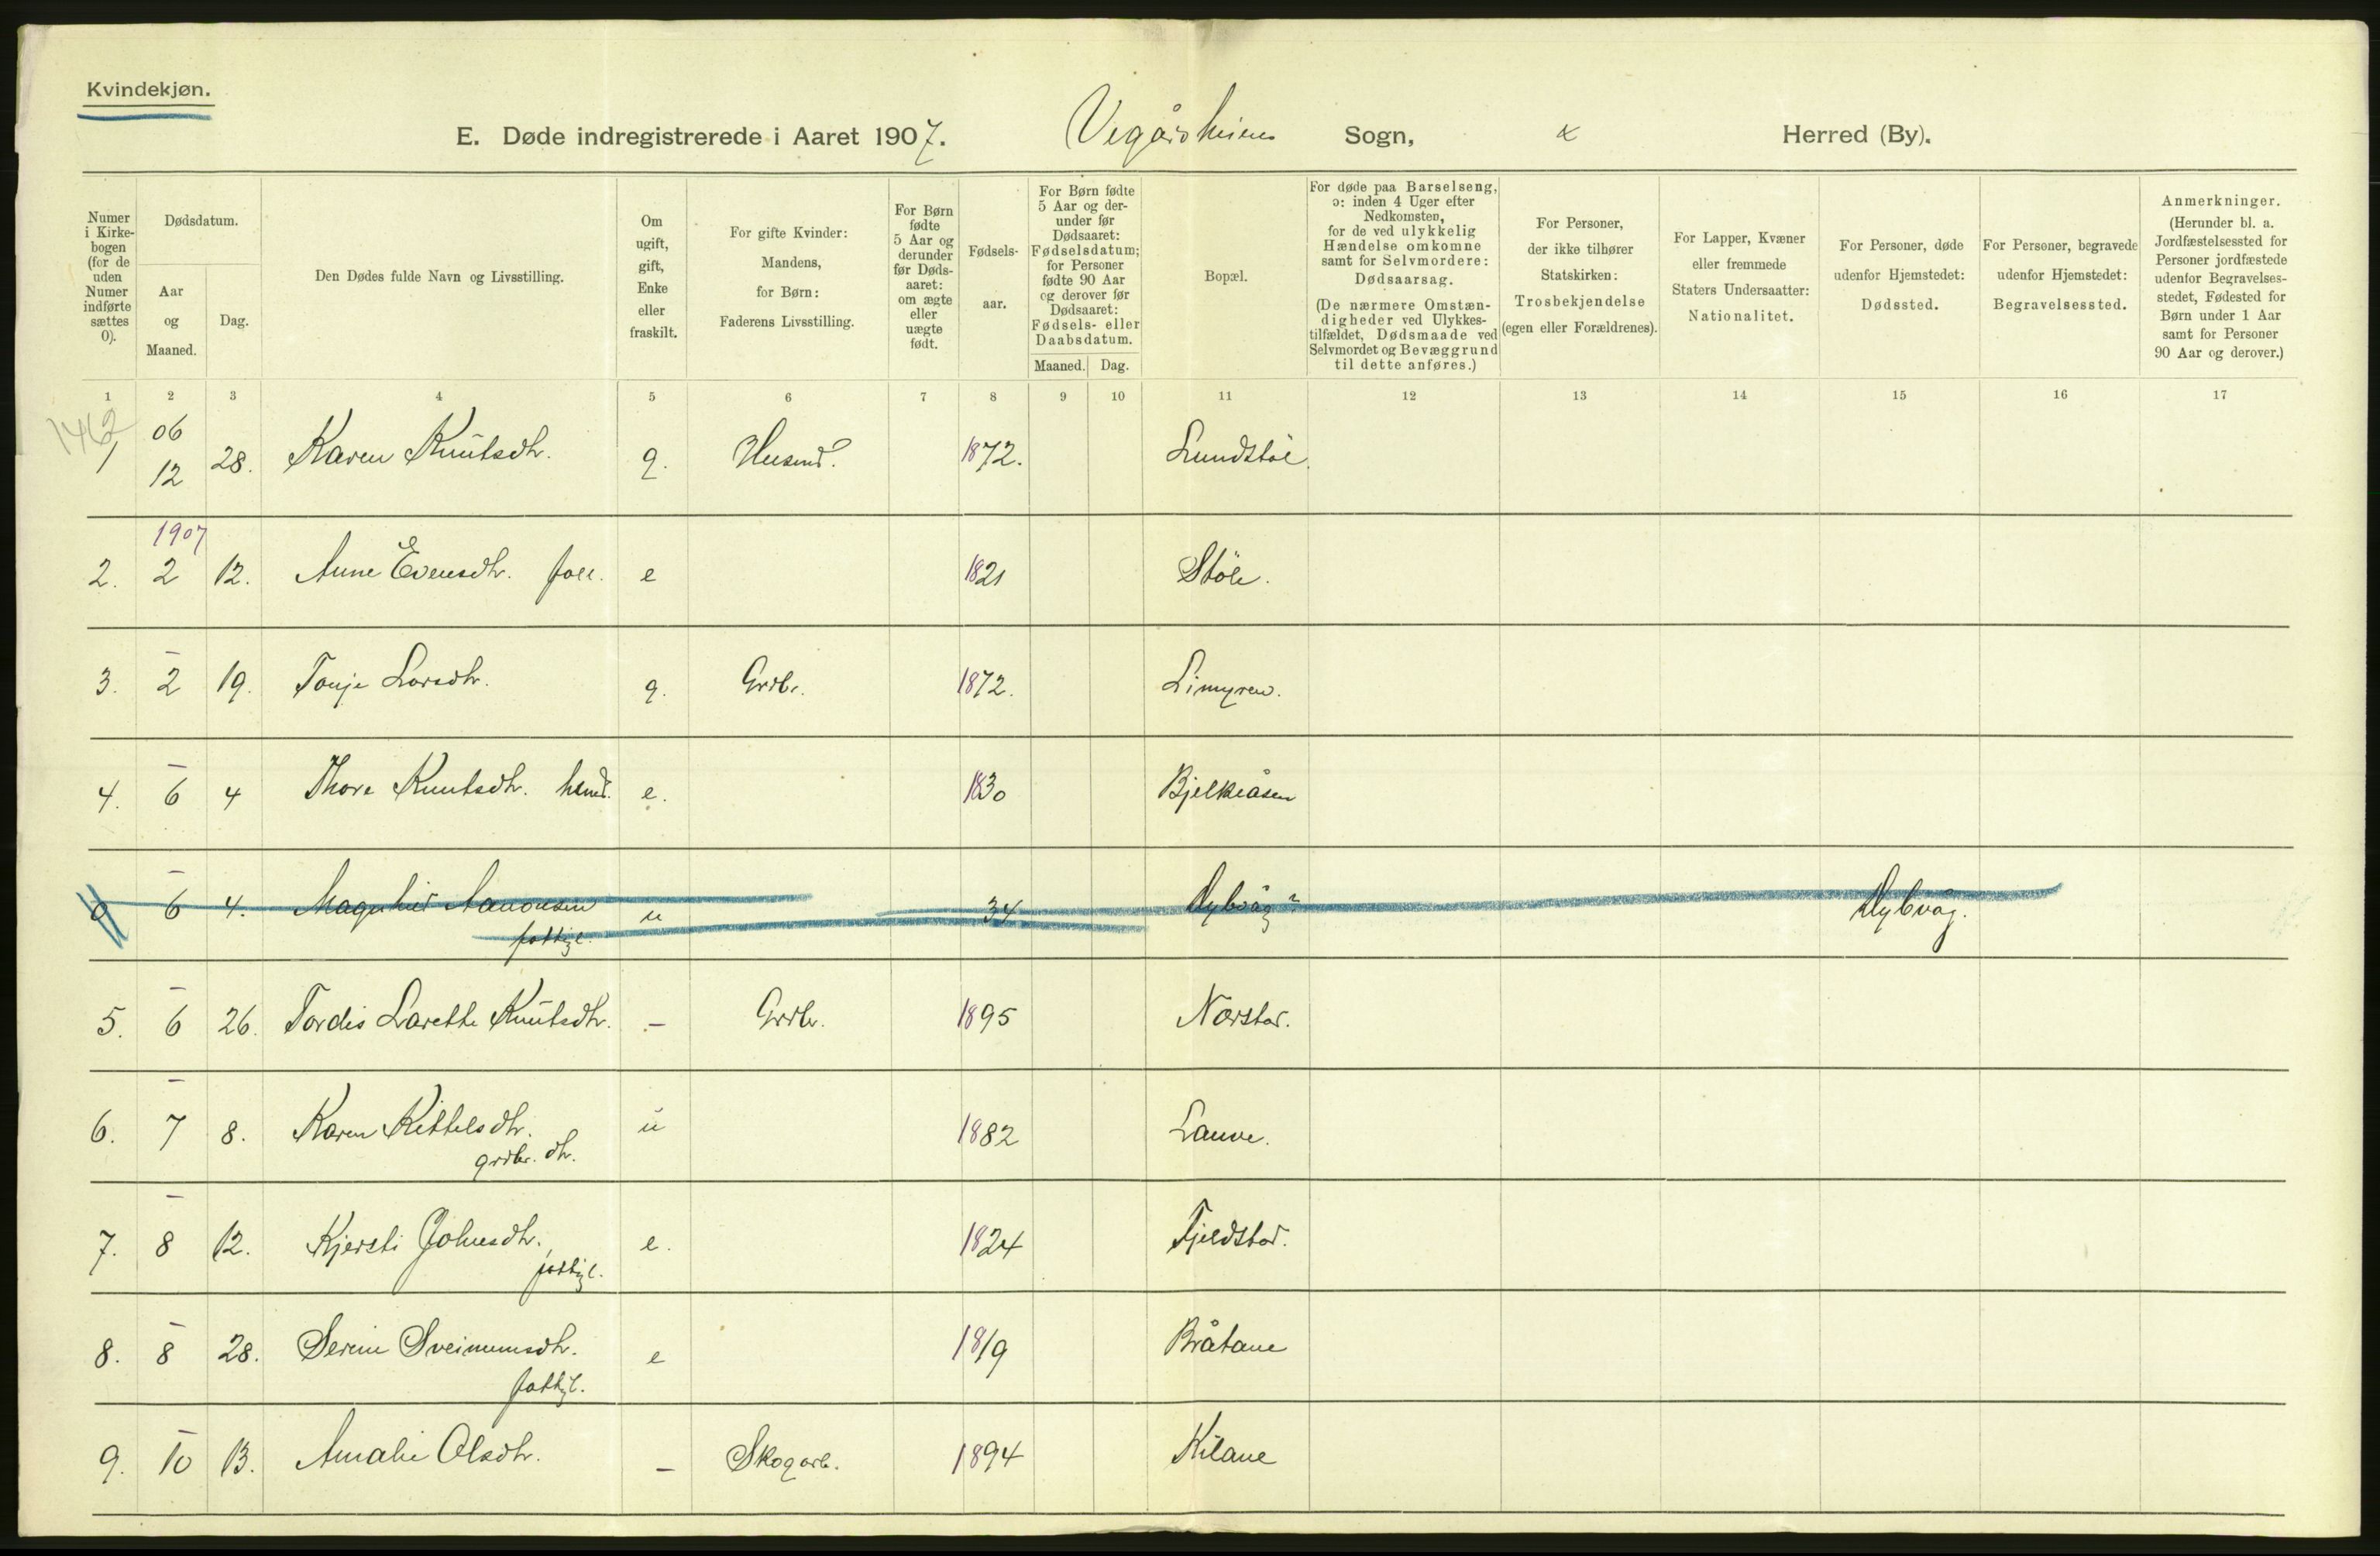 Kvindekjøn.
E. Døde indregistrerede i Aaret 1907. Vegårsheiens Sogn, Herred (By).
Numer i Kirkebogen (for de uden Numer indførte sættes 0).
Dødsdatum.
Aar og Maaned.
Dag.
Den Dødes fulde Navn og Livsstilling.
Om ugift, gift, Enke eller fraskilt.
For gifte Kvinder: Mandens, for Børn: Faderens Livsstilling.
For Børn fødte 5 Aar og derunder før Dødsaaret: om ægte eller uægte født.
Fødselsaar.
For Børn fødte 5 Aar og derunder før Dødsaaret: Fødselsdatum; for Personer fødte 90 Aar og derover før Dødsaaret: Fødsels- eller Daabsdatum.
Maaned. Dag.
Bopæl.
For døde paa Barselseng, ɔ: inden 4 Uger efter Nedkomsten, for de ved ulykkelig Hændelse omkomne samt for Selvmordere: Dødsaarsag.
(De nærmere Omstændigheder ved Ulykkestilfældet, Dødsmaade ved Selvmordet og Bevæggrund til dette anføres.)
For Personer, der ikke tilhører Statskirken: Trosbekjendelse (egen eller Forældrenes).
For Lapper, Kvæner eller fremmede Staters Undersaatter: Nationalitet.
For Personer, døde udenfor Hjemstedet: Dødssted.
For Personer, begravede udenfor Hjemstedet: Begravelsessted.
Anmerkninger.
(Herunder bl. a. Jordfæstelsessted for Personer jordfæstede udenfor Begravelsesstedet, Fødested for Børn under 1 Aar samt for Personer 90 Aar og derover.)
1 2 3 4 5 6 7 8 9 10 11 12 13 14 15 16 17
1462
1 06 12 28. Karen Knutsdtr. g. Husmd. 1872. Lundstøl.
1907
2. 2 12. Anne Evensdtr. e 1821 Støle.
3. – 2 19. Tonje Larsdtr. g. Grdbr. 1872. Limyren.
4. – 6 4 Thore Knutsdtr. e. 1830 Bjelkeåsen
0 – 6 4. Magnhild Aanonsen u 34 Dybvåg ? Dybvåg.
fattigl.
5. – 6 26. Tordis Larette Knutsdtr. – Grdbr. 1895 Norstad.
6. – 7 8. Karen Kittelsdtr. u 1882 Lauve.
grdbr. dtr.
7. – 8 12. Kjersti Johnsdtr. e. 1824 Fjeldstad.
fattigl.
8. – 8 28. Serine Sveinumsdtr. e 1819 Bråtane
fattigl.
9. – 10 13. Amalie Olsdtr. – Skogarb. 1894 Kilane